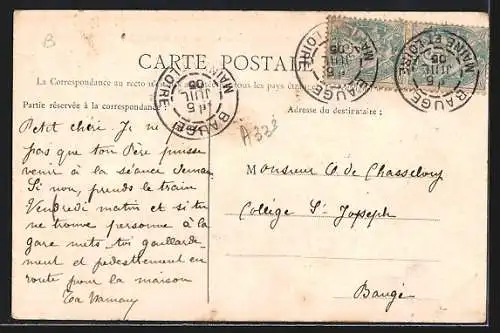 B
CARTE POSTALE
La Correspondance au recto n' tous les pays étrangers
Partie réservée à la correspondance
Adresse du destinataire :
BAUGE MAINE ET LOIRE JUIL 05
BAUGE MAINE ET LOIRE JUIL 05
BAUGE MAINE ET LOIRE JUIL 05
A 332
Petit chéri Je ne
pas que ton Père puisse
venir à la séance demain
Si non, prends le train
Vendredi matin et si tu
ne trouve personne à la
gare mets toi gaillarde
ment et pedestrement en
route pour la maison
Ta Maman
Monsieur de Chasseloup
Collège St Joseph
Baugé